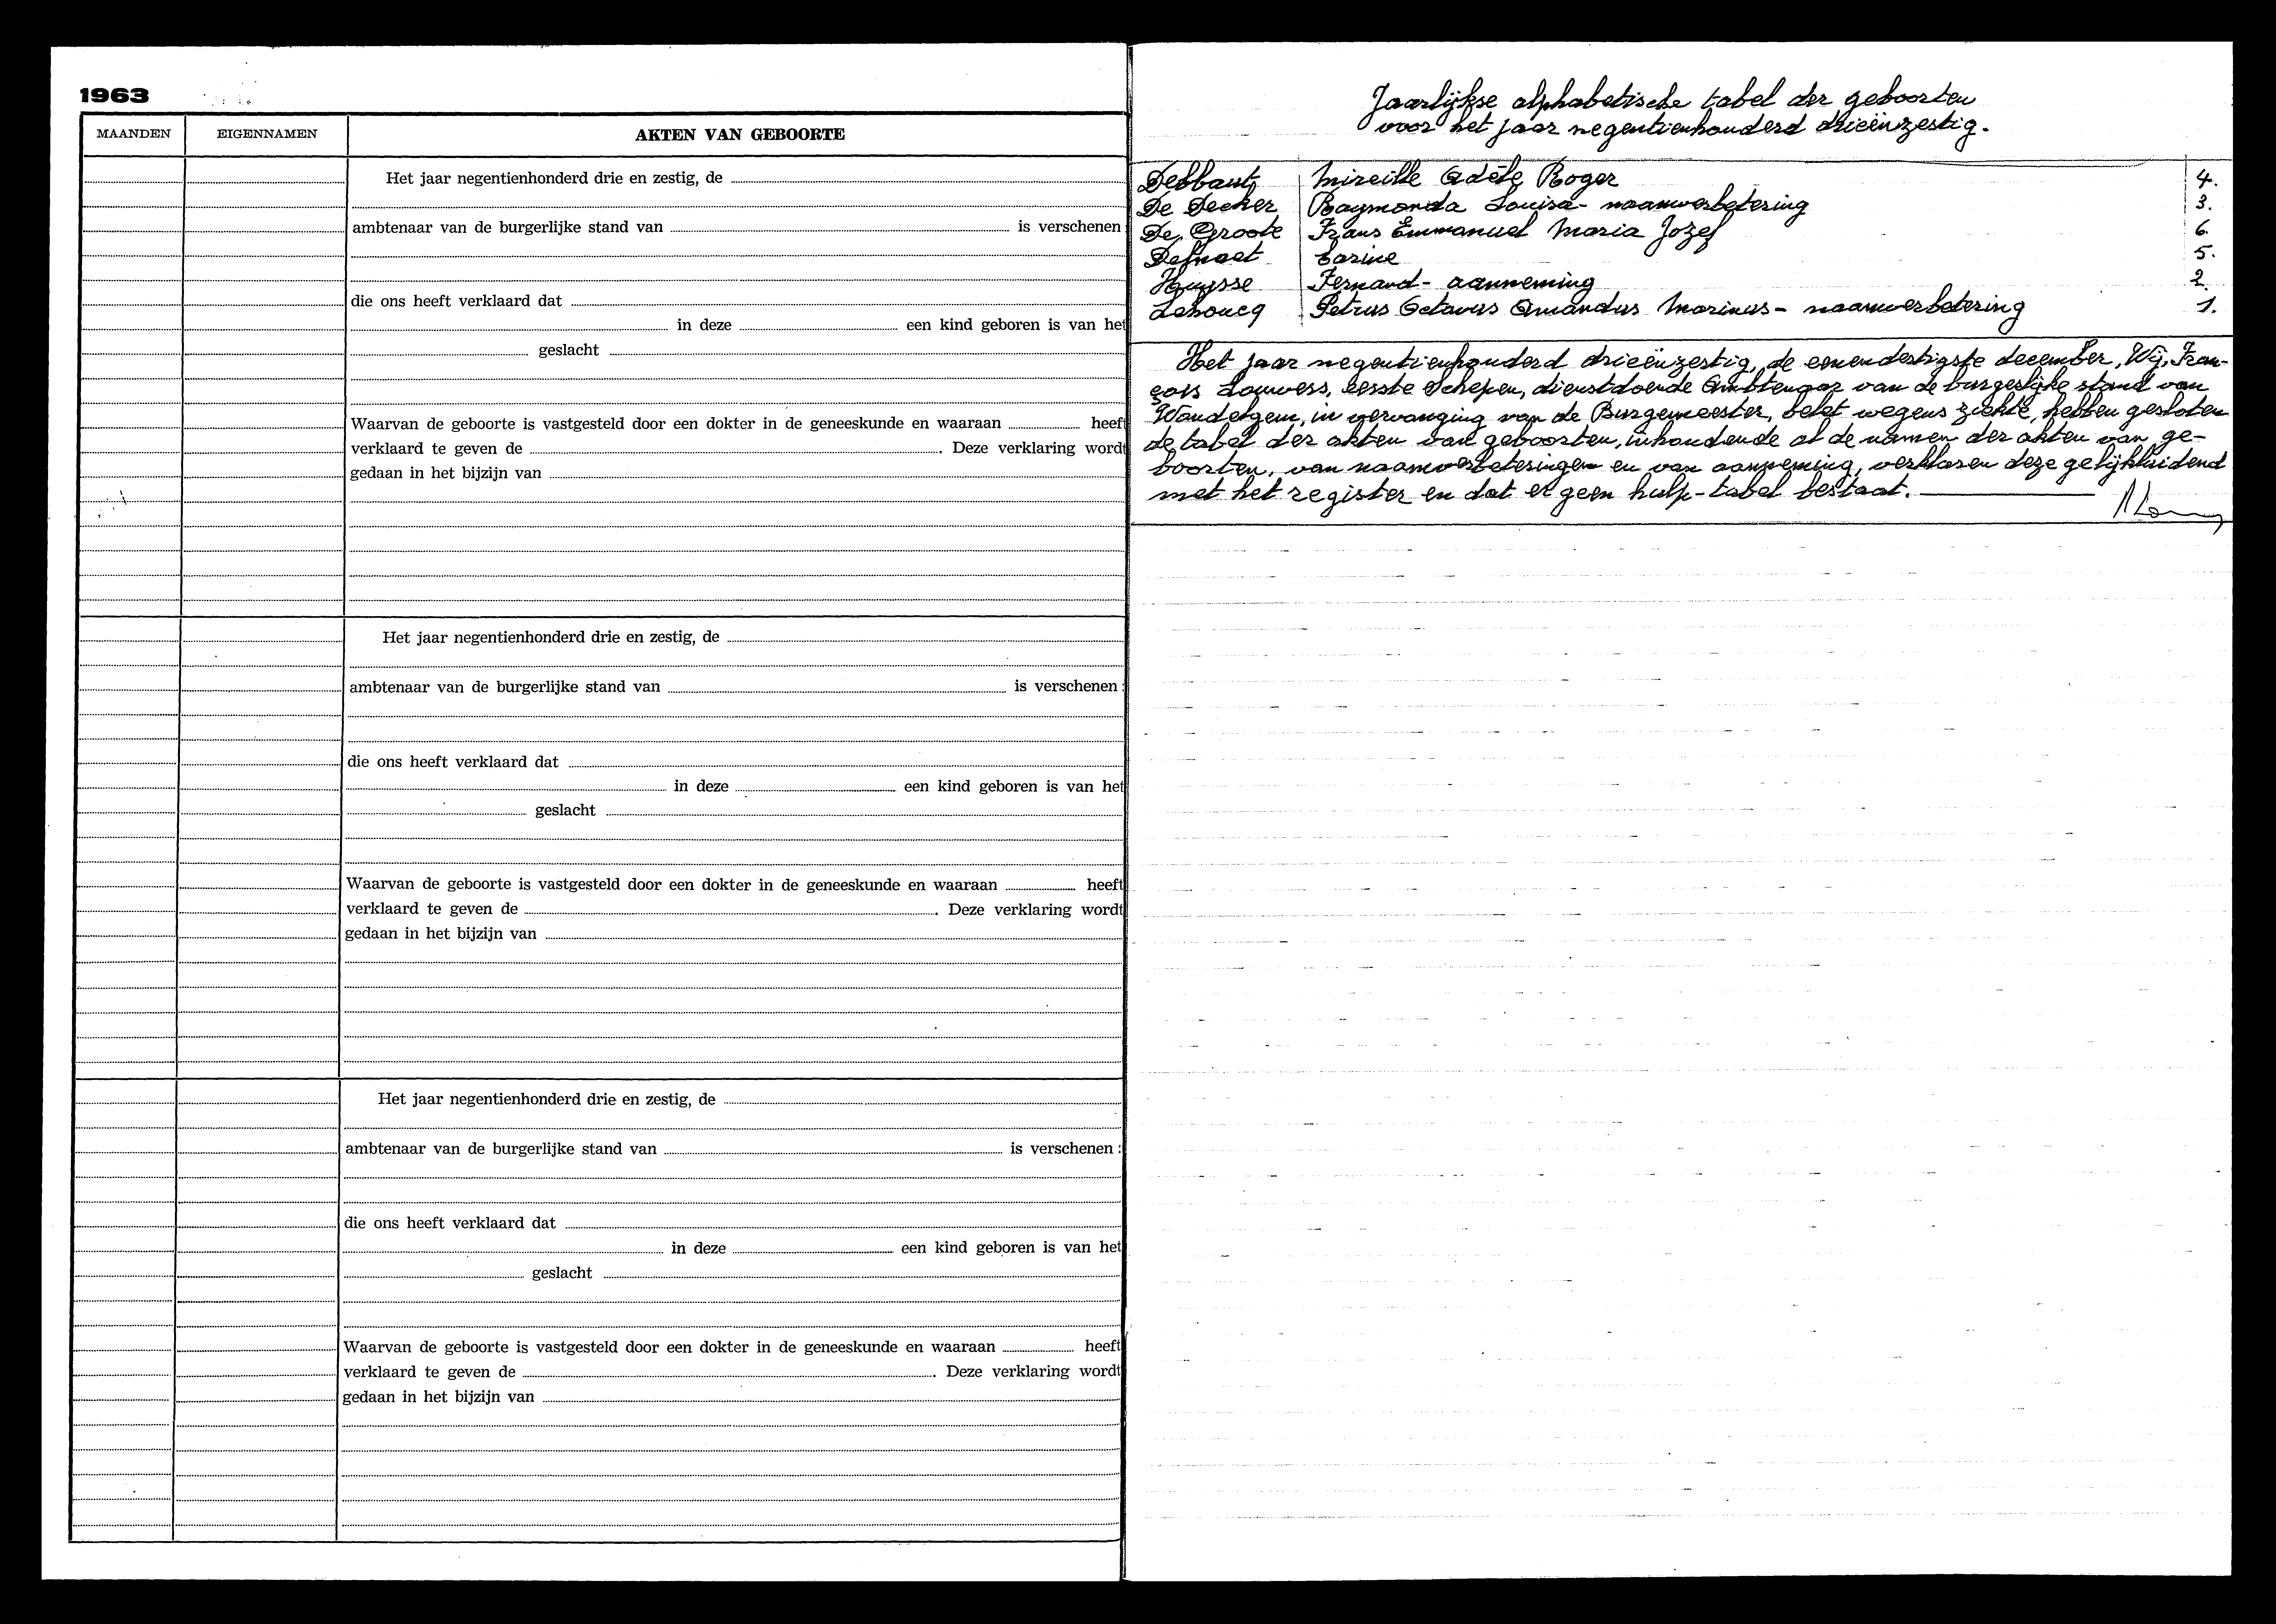 1963
MAANDEN EIGENNAMEN AKTEN VAN GEBOORTE
Het jaar negentienhonderd drie en zestig, de
ambtenaar van de burgerlijke stand van is verschenen
die ons heeft verklaard dat
in deze een kind geboren is van het
geslacht
Waarvan de geboorte is vastgesteld door een dokter in de geneeskunde en waaraan heeft
verklaard te geven de . Deze verklaring wordt
gedaan in het bijzijn van
Het jaar negentienhonderd drie en zestig, de
ambtenaar van de burgerlijke stand van is verschenen :
die ons heeft verklaard dat
in deze een kind geboren is van het
geslacht
Waarvan de geboorte is vastgesteld door een dokter in de geneeskunde en waaraan heeft
verklaard te geven de . Deze verklaring wordt
gedaan in het bijzijn van
Het jaar negentienhonderd drie en zestig, de
ambtenaar van de burgerlijke stand van is verschenen :
die ons heeft verklaard dat
in deze een kind geboren is van het
geslacht
Waarvan de geboorte is vastgesteld door een dokter in de geneeskunde en waaraan heeft
verklaard te geven de . Deze verklaring wordt
gedaan in het bijzijn van
Jaarlijkse alphabetische tabel der geboorten
voor het jaar negentienhonderd drieënzestig.
Debbaut Mireille Adèle Roger 4.
De Decker Raymonda Louisa - naamverbetering 3.
De Groote Frans Emmanuel Maria Jozef 6.
Carine 5.
Huysse Fernand - aanneming 2.
Lehoucq Petrus Octavus Amandus Marinus - naamverbetering 1.
Het jaar negentienhonderd drieënzestig, de eenendertigste december, Wij, Fran-
çois Louwers, eerste Schepen, dienstdoende Ambtenaar van de burgerlijke stand van
Wondelgem, in vervanging van de Burgemeester, belet wegens ziekte, hebben gesloten
de tabel der akten van geboorten, inhoudende al de namen der akten van ge-
boorten, van naamverbeteringen en van aanneming, verklaren deze gelijkluidend
met het register en dat er geen hulp-tabel bestaat.